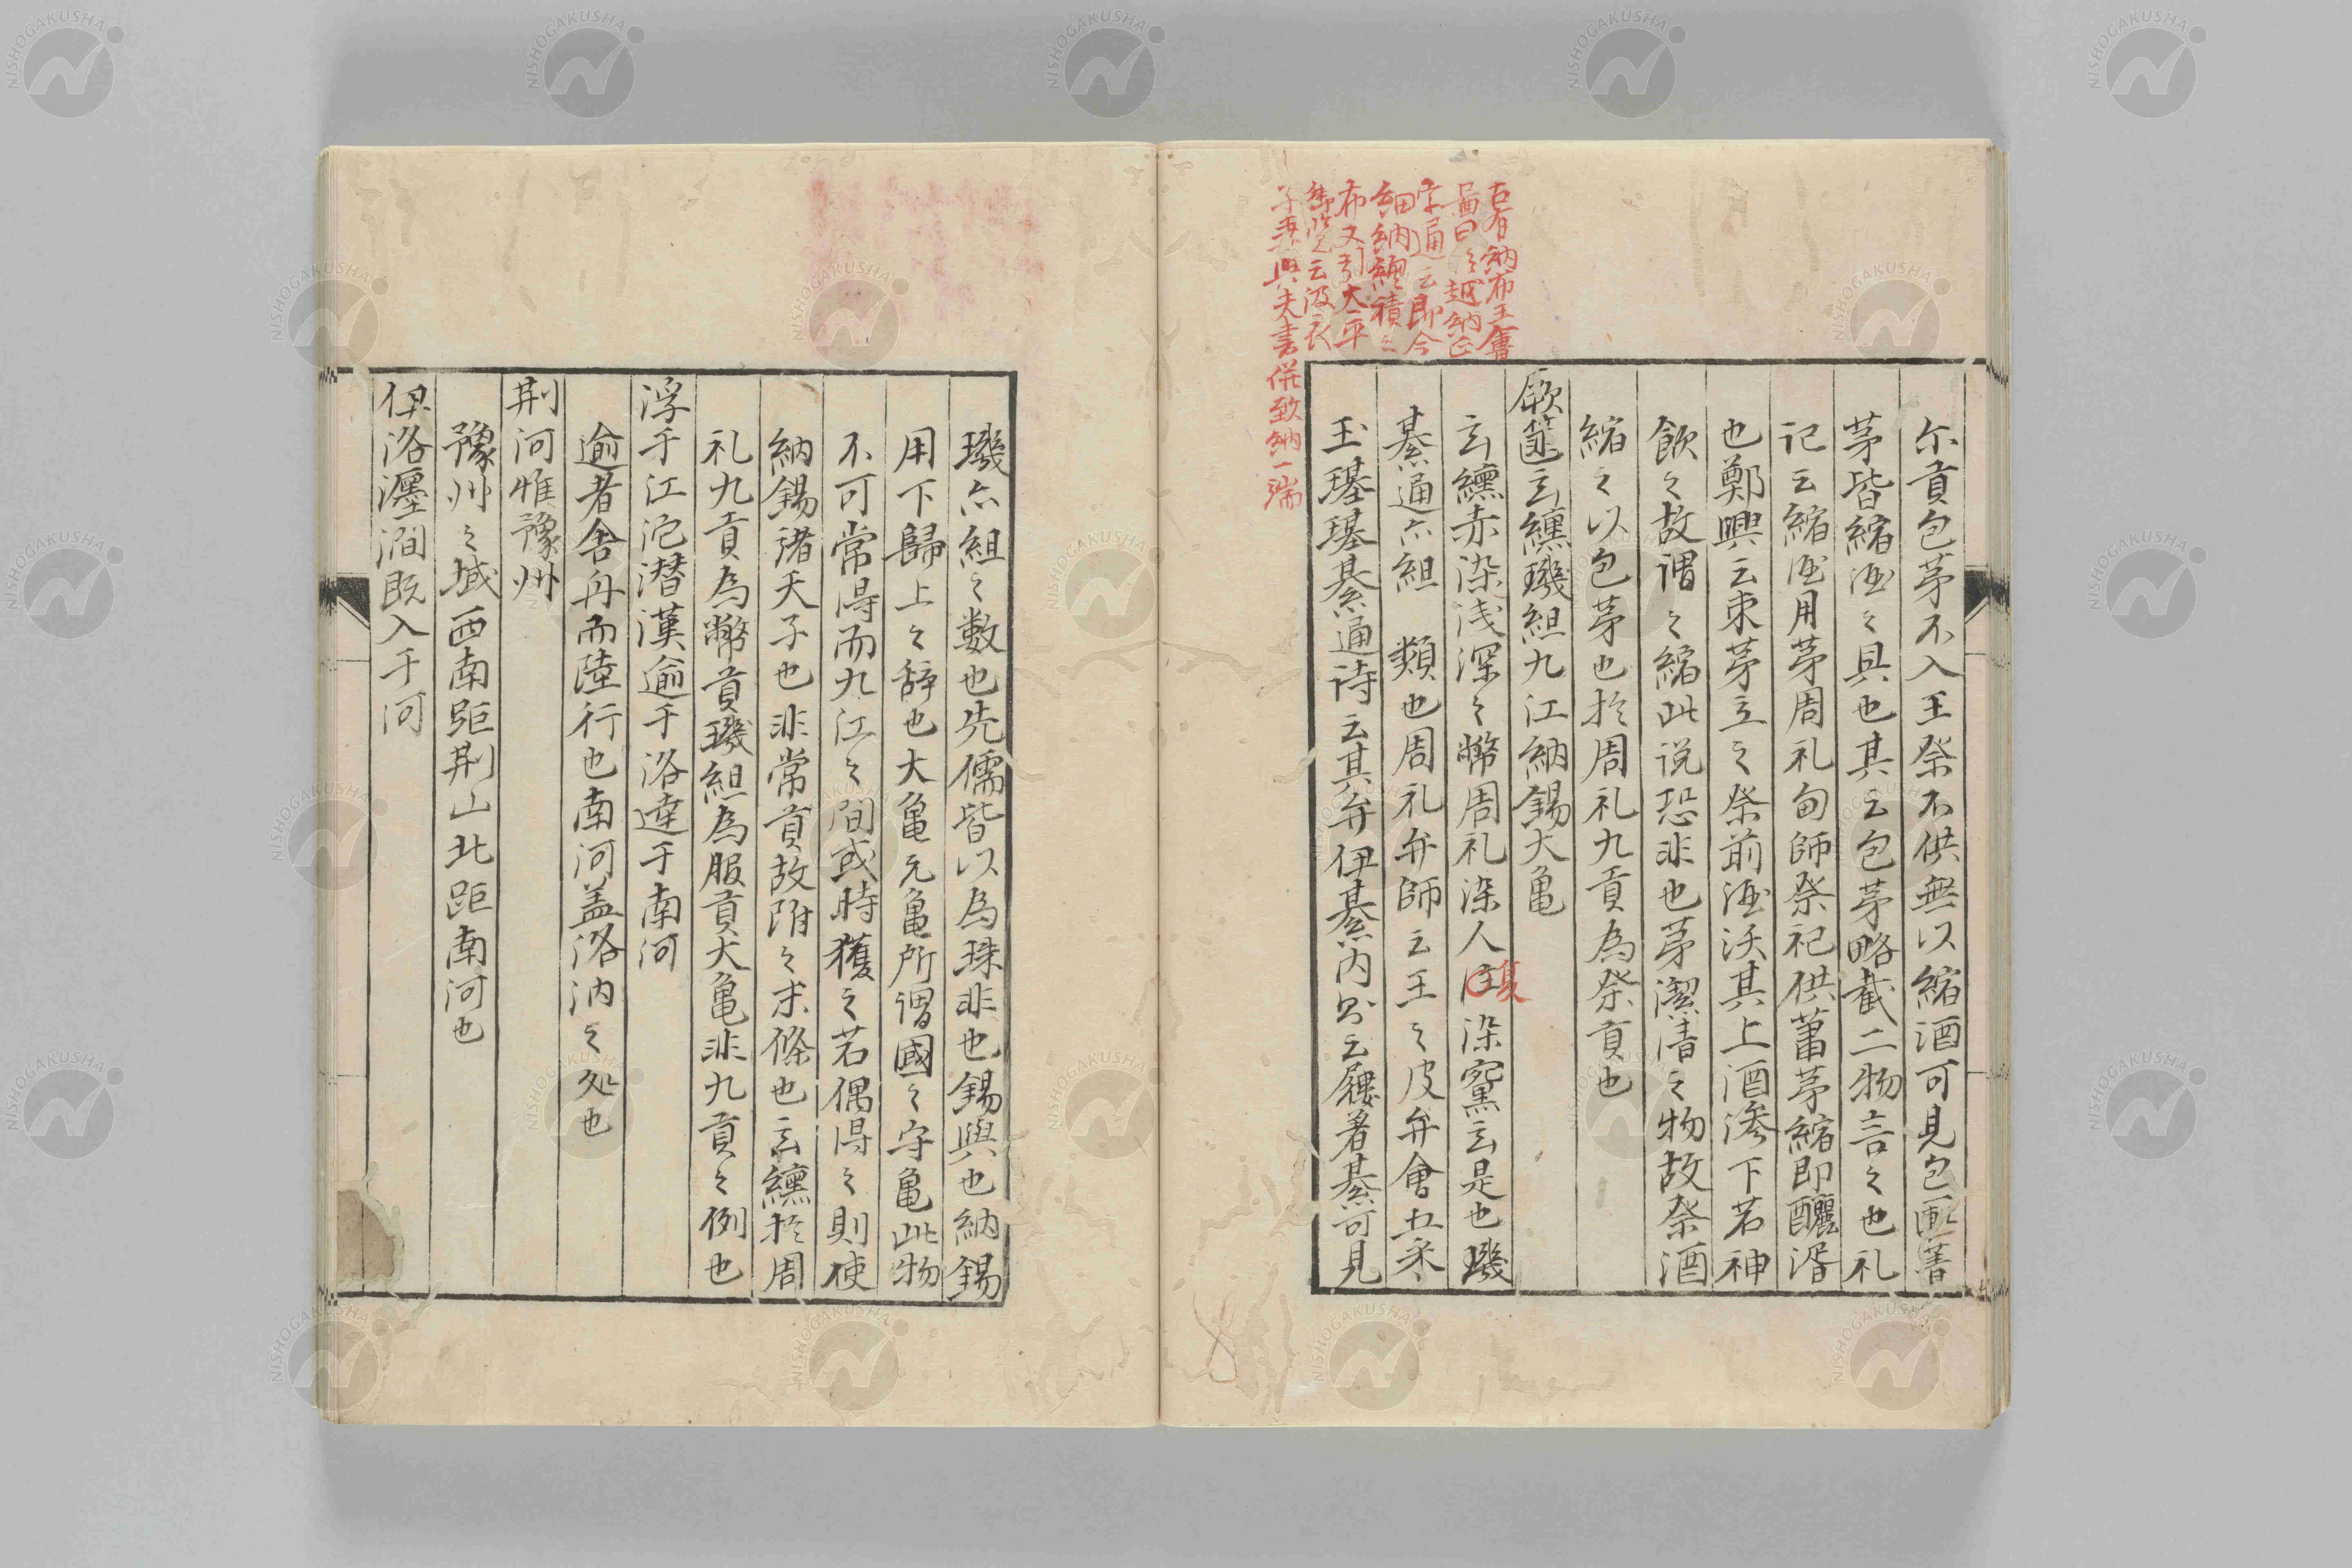 古有納布王會
啚曰於越納正
字通云即今
細納纏積之
布又引大平
御覧云汲冢
子善與夫妻併致納一端
尓貢包茅不入王祭不供無以縮酒可見包匭菁
茅皆縮酒之具也其云包茅略載二物言之也礼
記云縮酒用茅周礼甸師祭祀供蕭茅縮即釃湑
也鄭興云束茅立之祭前酒沃其上酒滲下若神
飲之故謂之縮此说恐非也茅潔清之物故祭酒
縮之以包茅也於周礼九貢為祭貢也
厥篚玄纁璣組九江納錫大亀
玄纁赤染浅深之幣周礼染人注染窠玄是也璣
夏
綦通亦組 類也周礼弁師云王之皮弁會五采
玉璂璂綦通诗云其弁伊綦内则云屨着綦可見
璣亦組之數也先儒皆以為珠非也錫與也納錫
用下歸上之辞也大亀元亀所謂國之守亀此物
不可常得而九江之間或時獲之若偶得之則使
納錫諸天子也非常貢故附之末條也玄纁於周
礼九貢為幣貢璣組為服貢大亀非九貢之例也
浮于江沱潜漢逾于洛達于南河
逾者舎舟而陸行也南河盖洛汭之処也
荆河惟豫州
豫州之域西南距荆山北距南河也
伊洛瀍澗既入于河
NISHOGAKUSHA